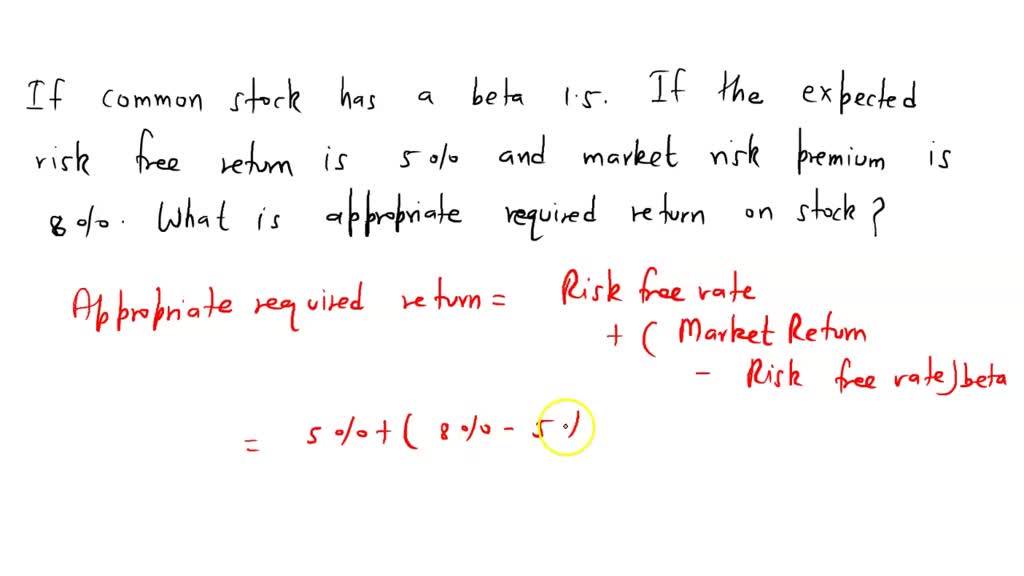 If common stock has a beta 1.5. If the expected
risk free return is 5% and market risk premium is
8%. What is appropriate required return on stock?
Appropriate required return = Risk free rate
+ ( Market Return
- Risk free rate) beta
= 5% + ( 8% - 5%